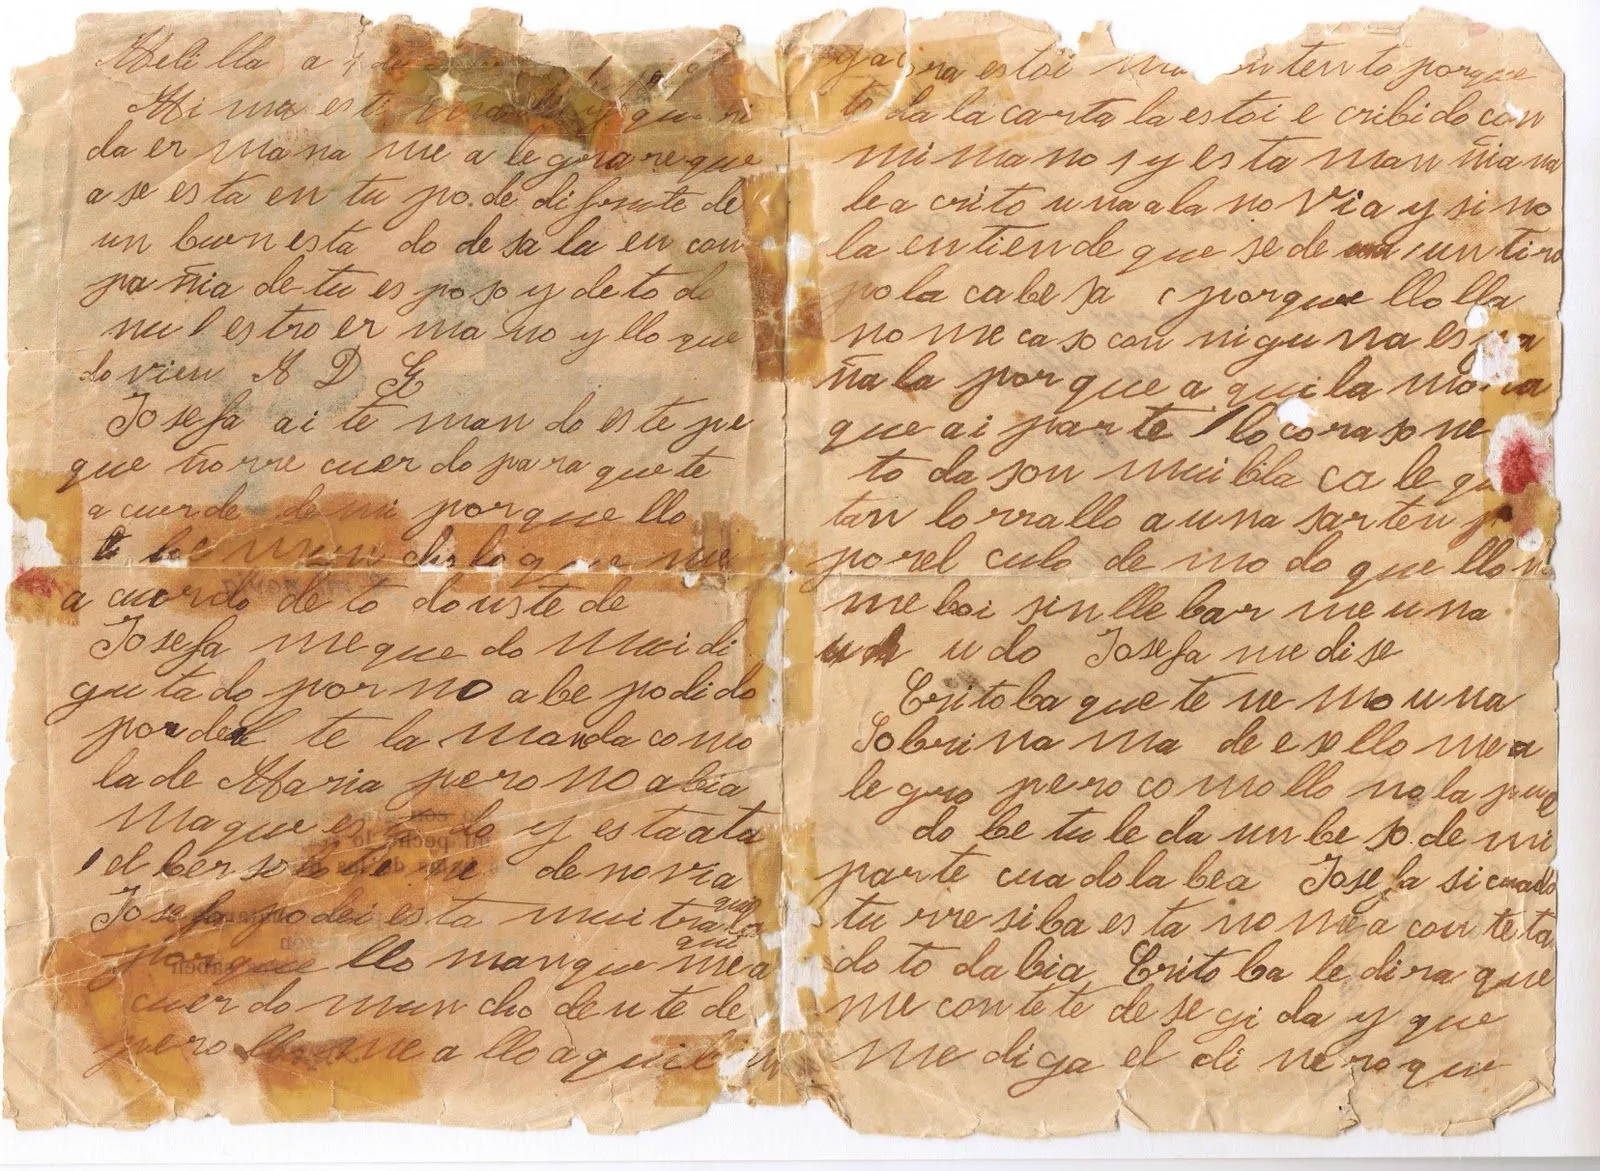 Melilla a 4 de
Mi mas est y que ri
da er mana me a le gra re que
a se es ta en tu po.de di frute de
un buen esta do de sa lu en con
pa ñia de tu es po so y de to do
nu l estro er ma no y llo que
do vien A D G
Josefa ai te man do es te pe
que ño rre cuer do para que te
a cuerde de mi por que llo
mun cho lo que me
a cuerdo de to do uste de
Josefa me que do mui di
gu ta do por no abe podi do
por der te la manda como
la de Maria pero no abia
ma que es do y esta ata
el ber so de novia
Josefa po dei es ta mui tra que
lo que
por que llo man que me a
cuer do mun cho de u te de
pero me a llo a qui
ra es toi ten to porque
to da la carta la es toi e cribi do con
mi ma no s y es ta man ñia na
le a crito una a la no via y si no
la en tien de que se de un tiro
po la cabe sa porque llo lla
no me ca so con ni gu na es pa
ña la por que a qui la mo ra
que ai par te lo cora so ne
to da son mui bla ca le gu
tan lo rra llo a una sar ten p
por el culo de mo do que llo n
me boi sin lle bar me u na
u do Josefa me di se
Crito ba que te ne mo u na
So bri na ma de e so llo me a
le gro pero co mo llo no la pue
do be tu le da un be so de mi
par te cua do la bea Josefa si cuado
tu rre si ba es ta no me a con te ta
do to da bia Crito ba le di ra que
me con te te de se gi da y que
me di ga el di ne ro que